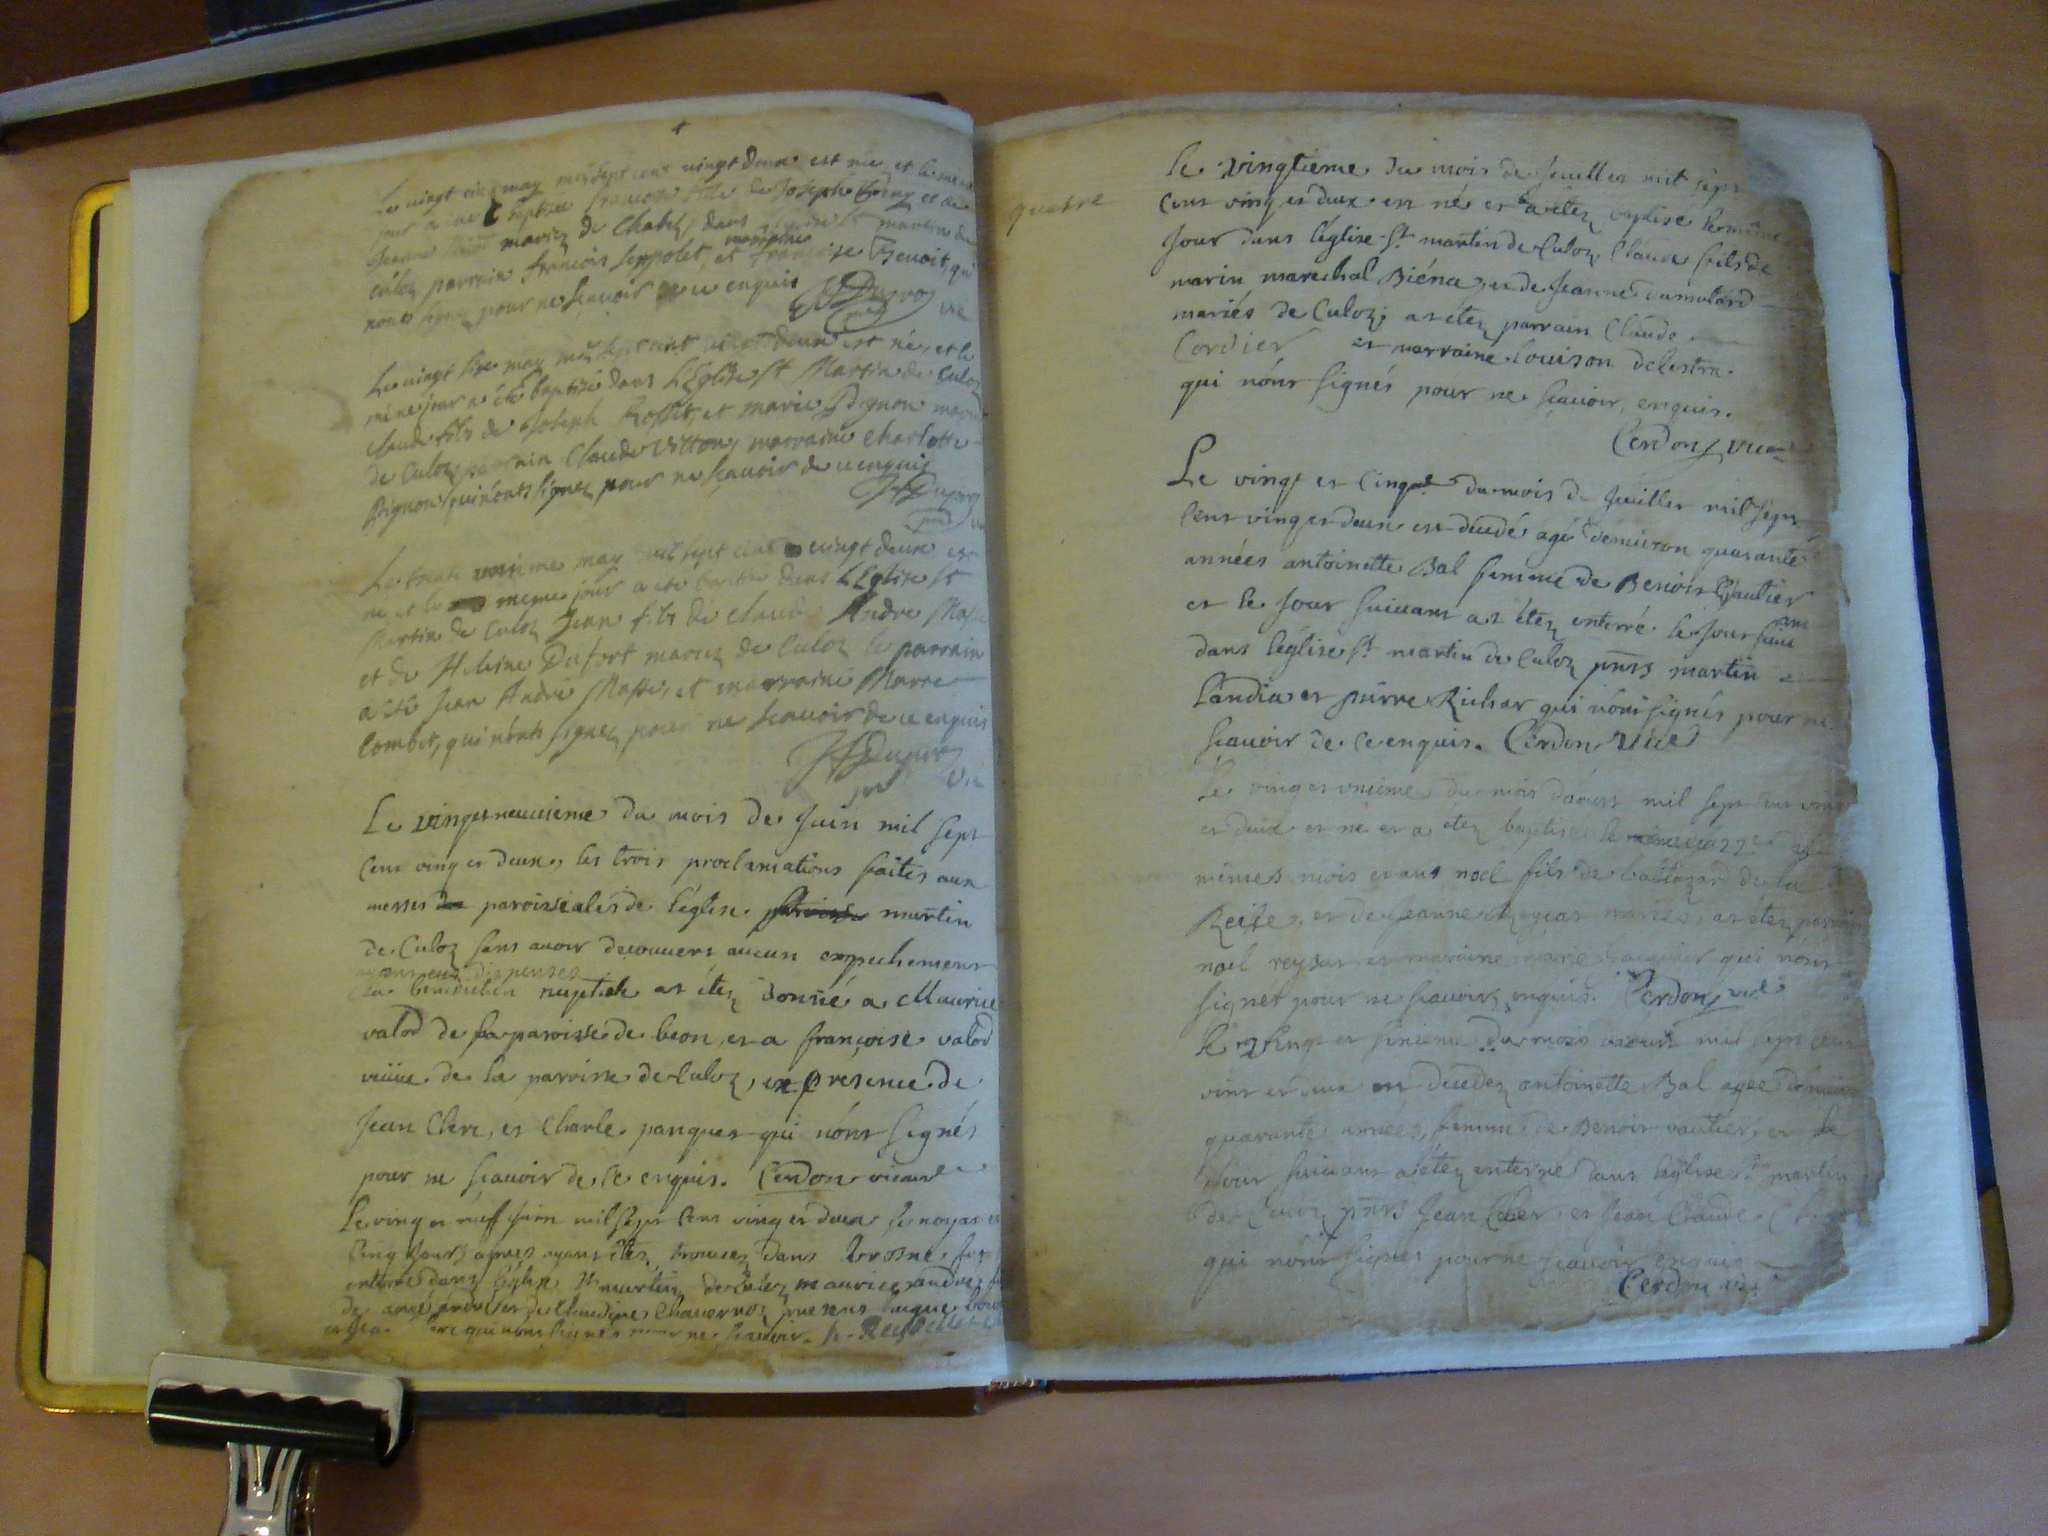 Le vingt cinq may mil sept cent vingt deux est née et le meme
jour a été baptisée françoise fille de Joseph et de
Jeanne mariez de Chatel, dans l'église St martin de
culoz parrain françois seppolet, et marraine françoise Benoit, qui
nonts signez pour ne scavoir de ce enquis Dupros vic
Le vingt six may mil sept cent vingt deux est né, et le
même jour a été baptizé dans L'Eglise St Martin de Culoz
claude fils de Joseph Rosset, et marie Pignon mariez
de Culoz parrain Claude Vitton, marraine charlotte
Pignon qui nonts signez pour ne scavoir de ce enquis
Dupros
Le trente unième may mil sept cent vingt deux est
né et le meme jour a été baptisé dans L'Eglise St
Martin de Culoz Jean fils de claude André Masse
et de Helaine Dufort mariez de Culoz le parrain
a été Jean André Masse, et marraine Marie
Combet, qui nonts signez pour ne scavoir de ce enquis
Dupros
vic
Le vingt et neuvieme du mois de Juin mil sept
cent vingt et deux, les trois proclamations faites aux
messes paroissiales de l'église martin
de Culoz sans avoir decouvert aucun empechement
ayant eus dispenses
la benediction nuptiale at étez donné a Maurice
valod de la paroisse de beon, et a françoise valod
veüve de la paroisse de Culoz, en presence de
Jean Clerc, et Charle panques qui n'ont signés
pour ne scavoir de ce enquis. Cerdon vicaire
Le vingt et neuf Juin mil sept cent vingt et deux se noyat et
cinq jours apres ayant étez trouvez dans le rosne fut
enterré dans l'église St martin de Culoz maurice andré
de andré et de Claudine Chavornoz presens
qui nont signés pour ne scavoir.
quatre
le vingtieme du mois de Juillet mil sept
cent vingt et deux est né et a étez baptisé le même
Jour dans l'église St martin de Culoz Claude fils de
marin marechal Biéna et de Jeanne dumolard
mariés de Culoz, at étez parrain Claude
Cordier et marraine Louison delestra
qui n'ont signés pour ne scavoir, enquis.
Cerdon vicai
Le vingt et cinqe du mois de Juillet mil sept
cent vingt et deux est decedé agé denviron quarante
années antoinette Bal femme de Benoit Gautier
et le Jour suivant at étez enterré le Jour suivant
dans l'église St martin de Culoz pnts martin
Candia et pierre Richar qui n'ont signés pour ne
scavoir de ce enquis. Cerdon vice
Le vingt et unieme du mois daoust mil sept cent vingt
et deux et né et a étez baptisé le 22e du
mêmes mois et ans noel fils de baltazard de la
Reise, et de Jeanne mariés, at étez parrain
noel reydar et maraine marie qui n'ont
signet pour ne scavoir, enquis. Cerdon vic
le vingt et sixieme du mois daoust mil sept cent
vint et deux est decedez antoinette Bal agee denviron
quarante années, femme de Benoit vautier, et le
Jour suivant at étez enterré dans l'église St martin
de Culoz pnts Jean Clerc et Jean Claude
qui n'ont signés pour ne scavoir enquis
Cerdon vic